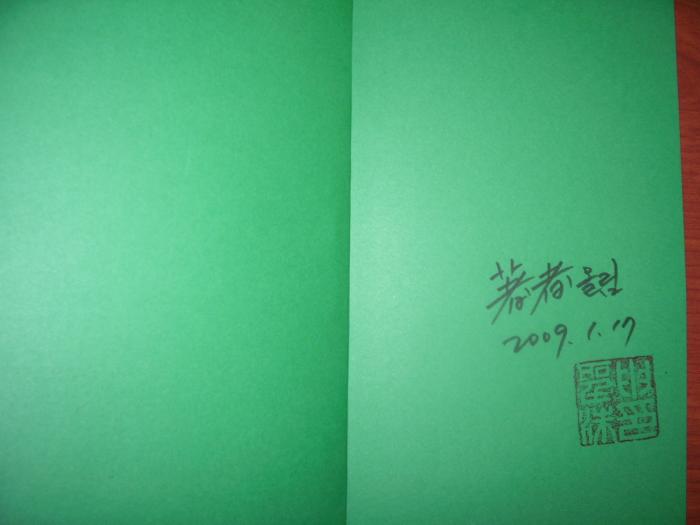 著者 올림
2009. 1. 17